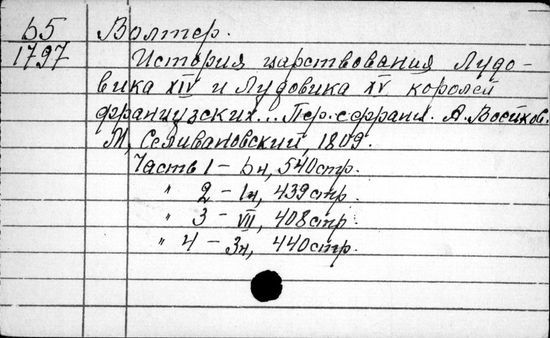 b5 Волтер.
1797 История царствования Лудо-
вика XIV и Лудовика XV королей
французских... Пер. с франц. А. Воейков.
М, Селивановский, 1809.
Часть 1 – bн, 540 стр.
" 2 – 1н, 439 стр.
" 3 – VII, 408 стр.
" 4 – 3н, 440 стр.